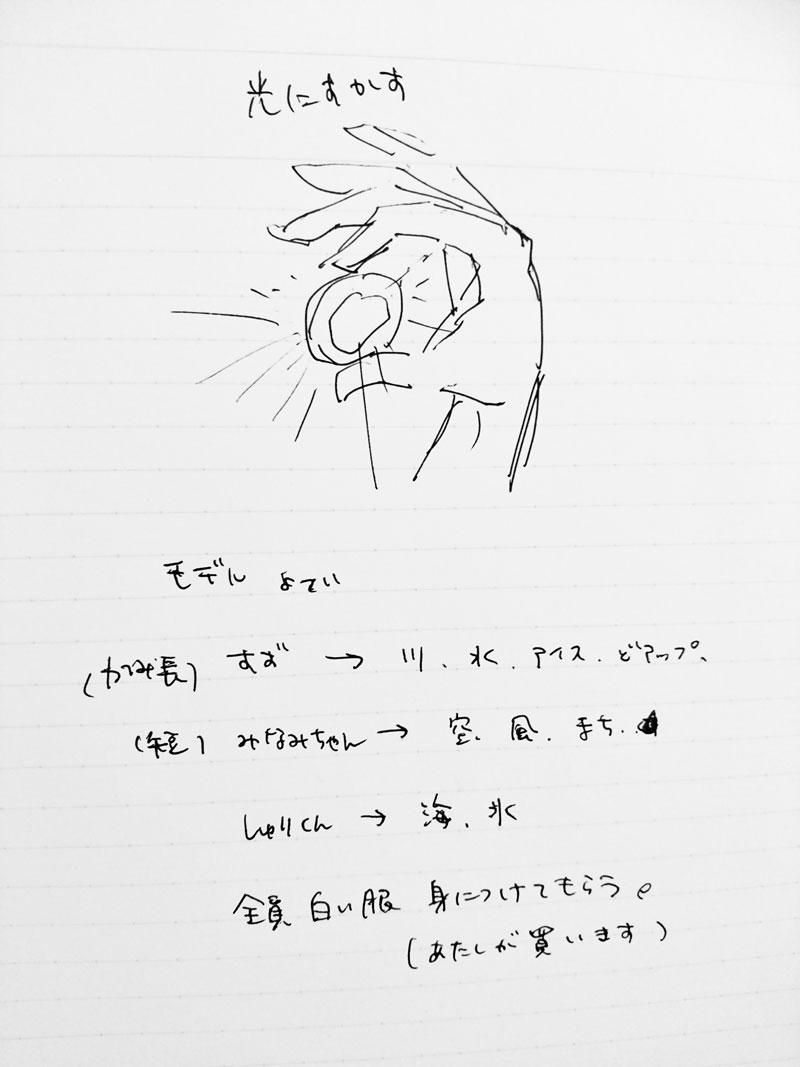 光にすかす
モデル よてい
(かみ長) すず → 川、水、アイス、どアップ、
(短) みなみちゃん → 空、風、まち、
しゅりくん → 海、氷
全員 白い服 身につけてもらう。
(あたしが買います)